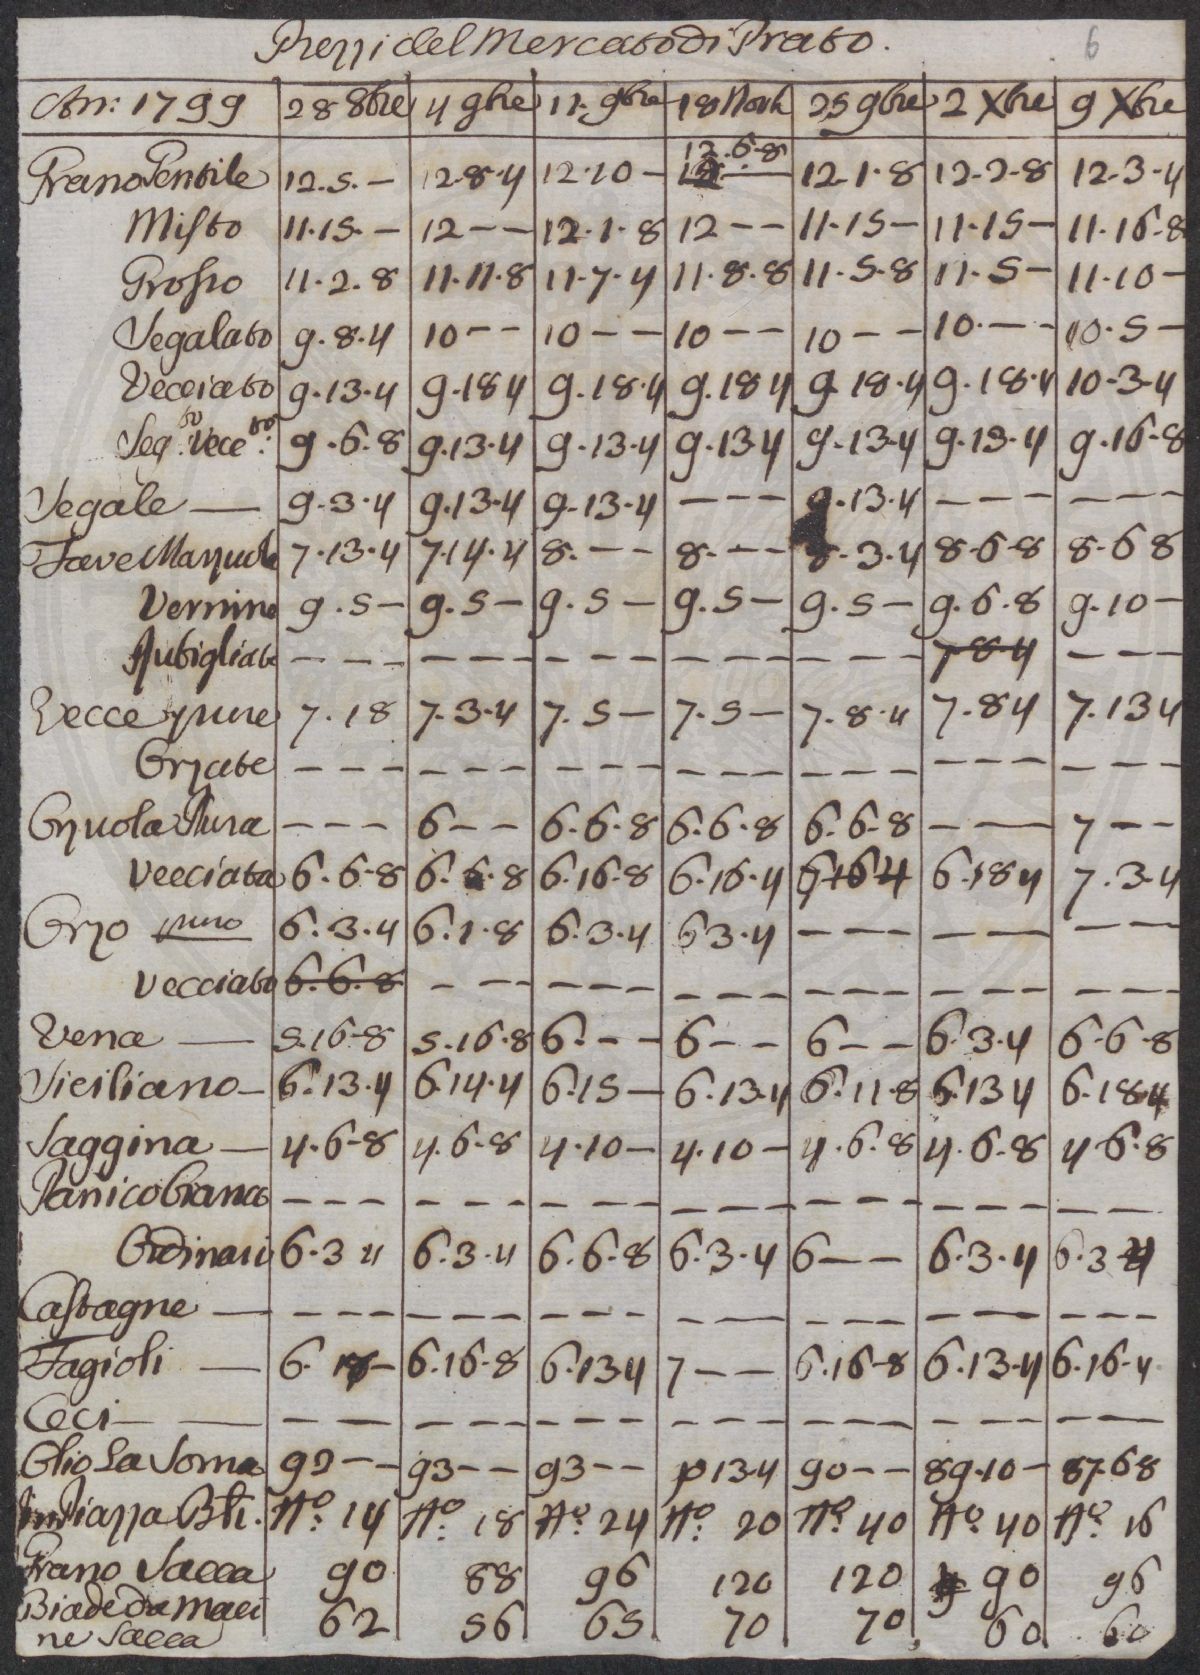 Prezzi del Mercato di Prato. 6
An: 1799 28 8bre 4 9bre 11. 9bre 18 Novb 25 9bre 2 Xbre 9 Xbre
12.6-8
Grano Gentile 12.5.— 12-8-4 12.10— 12-1-8 12-2-8 12-3-4
Misto 11.15.— 12 — — 12.1.8 12 — — 11.15— 11.15— 11.16-8
Grosso 11.2.8 11.11.8 11.7.4 11.8.8 11.5.8 11.5— 11.10—
Segalato 9.8.4 10 — — 10 — — 10 — — 10 — — 10. — — 10.5—
Vecciato 9.13.4 9.18 4 9.18.4 9.18 4 9 18.4 9.18.4 10-3-4
Seg.to Vecc.to 9.6.8 9.13.4 9.13.4 9.13 4 9.13.4 9.13.4 9.16-8
Segale — 9.3.4 9.13.4 9.13.4 — — — 9.13.4 — — — — — —
Fave Mazzuole 7.13.4 7.14.4 8. — — 8. — — 8.3.4 8-6-8 8-6 8
Vernine 9.5— 9.5— 9.5— 9.5— 9.5— 9.6.8 9.10—
— — — — — — — — — — — — — — — 7 8 4 — — —
Vecce pure 7.18 7.3.4 7.5— 7.5— 7.8.4 7.8 4 7.13 4
Orzate — — — — — — — — — — — — — — — — — — — — —
Orzuola Pura — — — 6 — — 6.6.8 6.6.8 6.6-8 — — 7 — —
Vecciata 6.6-8 6.6.8 6.16-8 6.16.4 6 16 4 6.18 4 7.3.4
Orzo puro 6.3.4 6.1.8 6.3.4 6 3.4 — — — — — — —
Vecciato 6.6.8 — — — — — — — — — — — — — — — — — —
Vena — 5.16-8 5.16.8 6. — — 6 — — 6 — — 6.3.4 6-6-8
Siciliano — 6.13.4 6.14.4 6.15— 6.13.4 6.11-8 6.13 4 6.18.4
Saggina — 4.6-8 4.6-8 4.10— 4.10— 4.6.8 4.6-8 4 6.8
Panico — — — — — — — — — — — — — — — — — — — — —
Ordinari 6.3 4 6.3.4 6.6-8 6.3.4 6 — — 6.3.4 6.3 4
Castagne — — — — — — — — — — — — — — — — — — — — — —
Fagioli — 6. 6.16-8 6.13 4 7 — — 6.16-8 6.13-4 6.16-4
Ceci — — — — — — — — — — — — — — — — — — — — — — —
Olio La Soma 92 — — 93 — — 93 — — 13.4 90 — — 89.10— 87.6 8
Piazza Bti. No. 14 No. 18 No. 24 No. 20 No. 40 No. 40 No. 16
Grano Sacca 90 88 96 120 120 90 96
Biade da Maci 62 56 65 70 70 60 60
ne Sacca